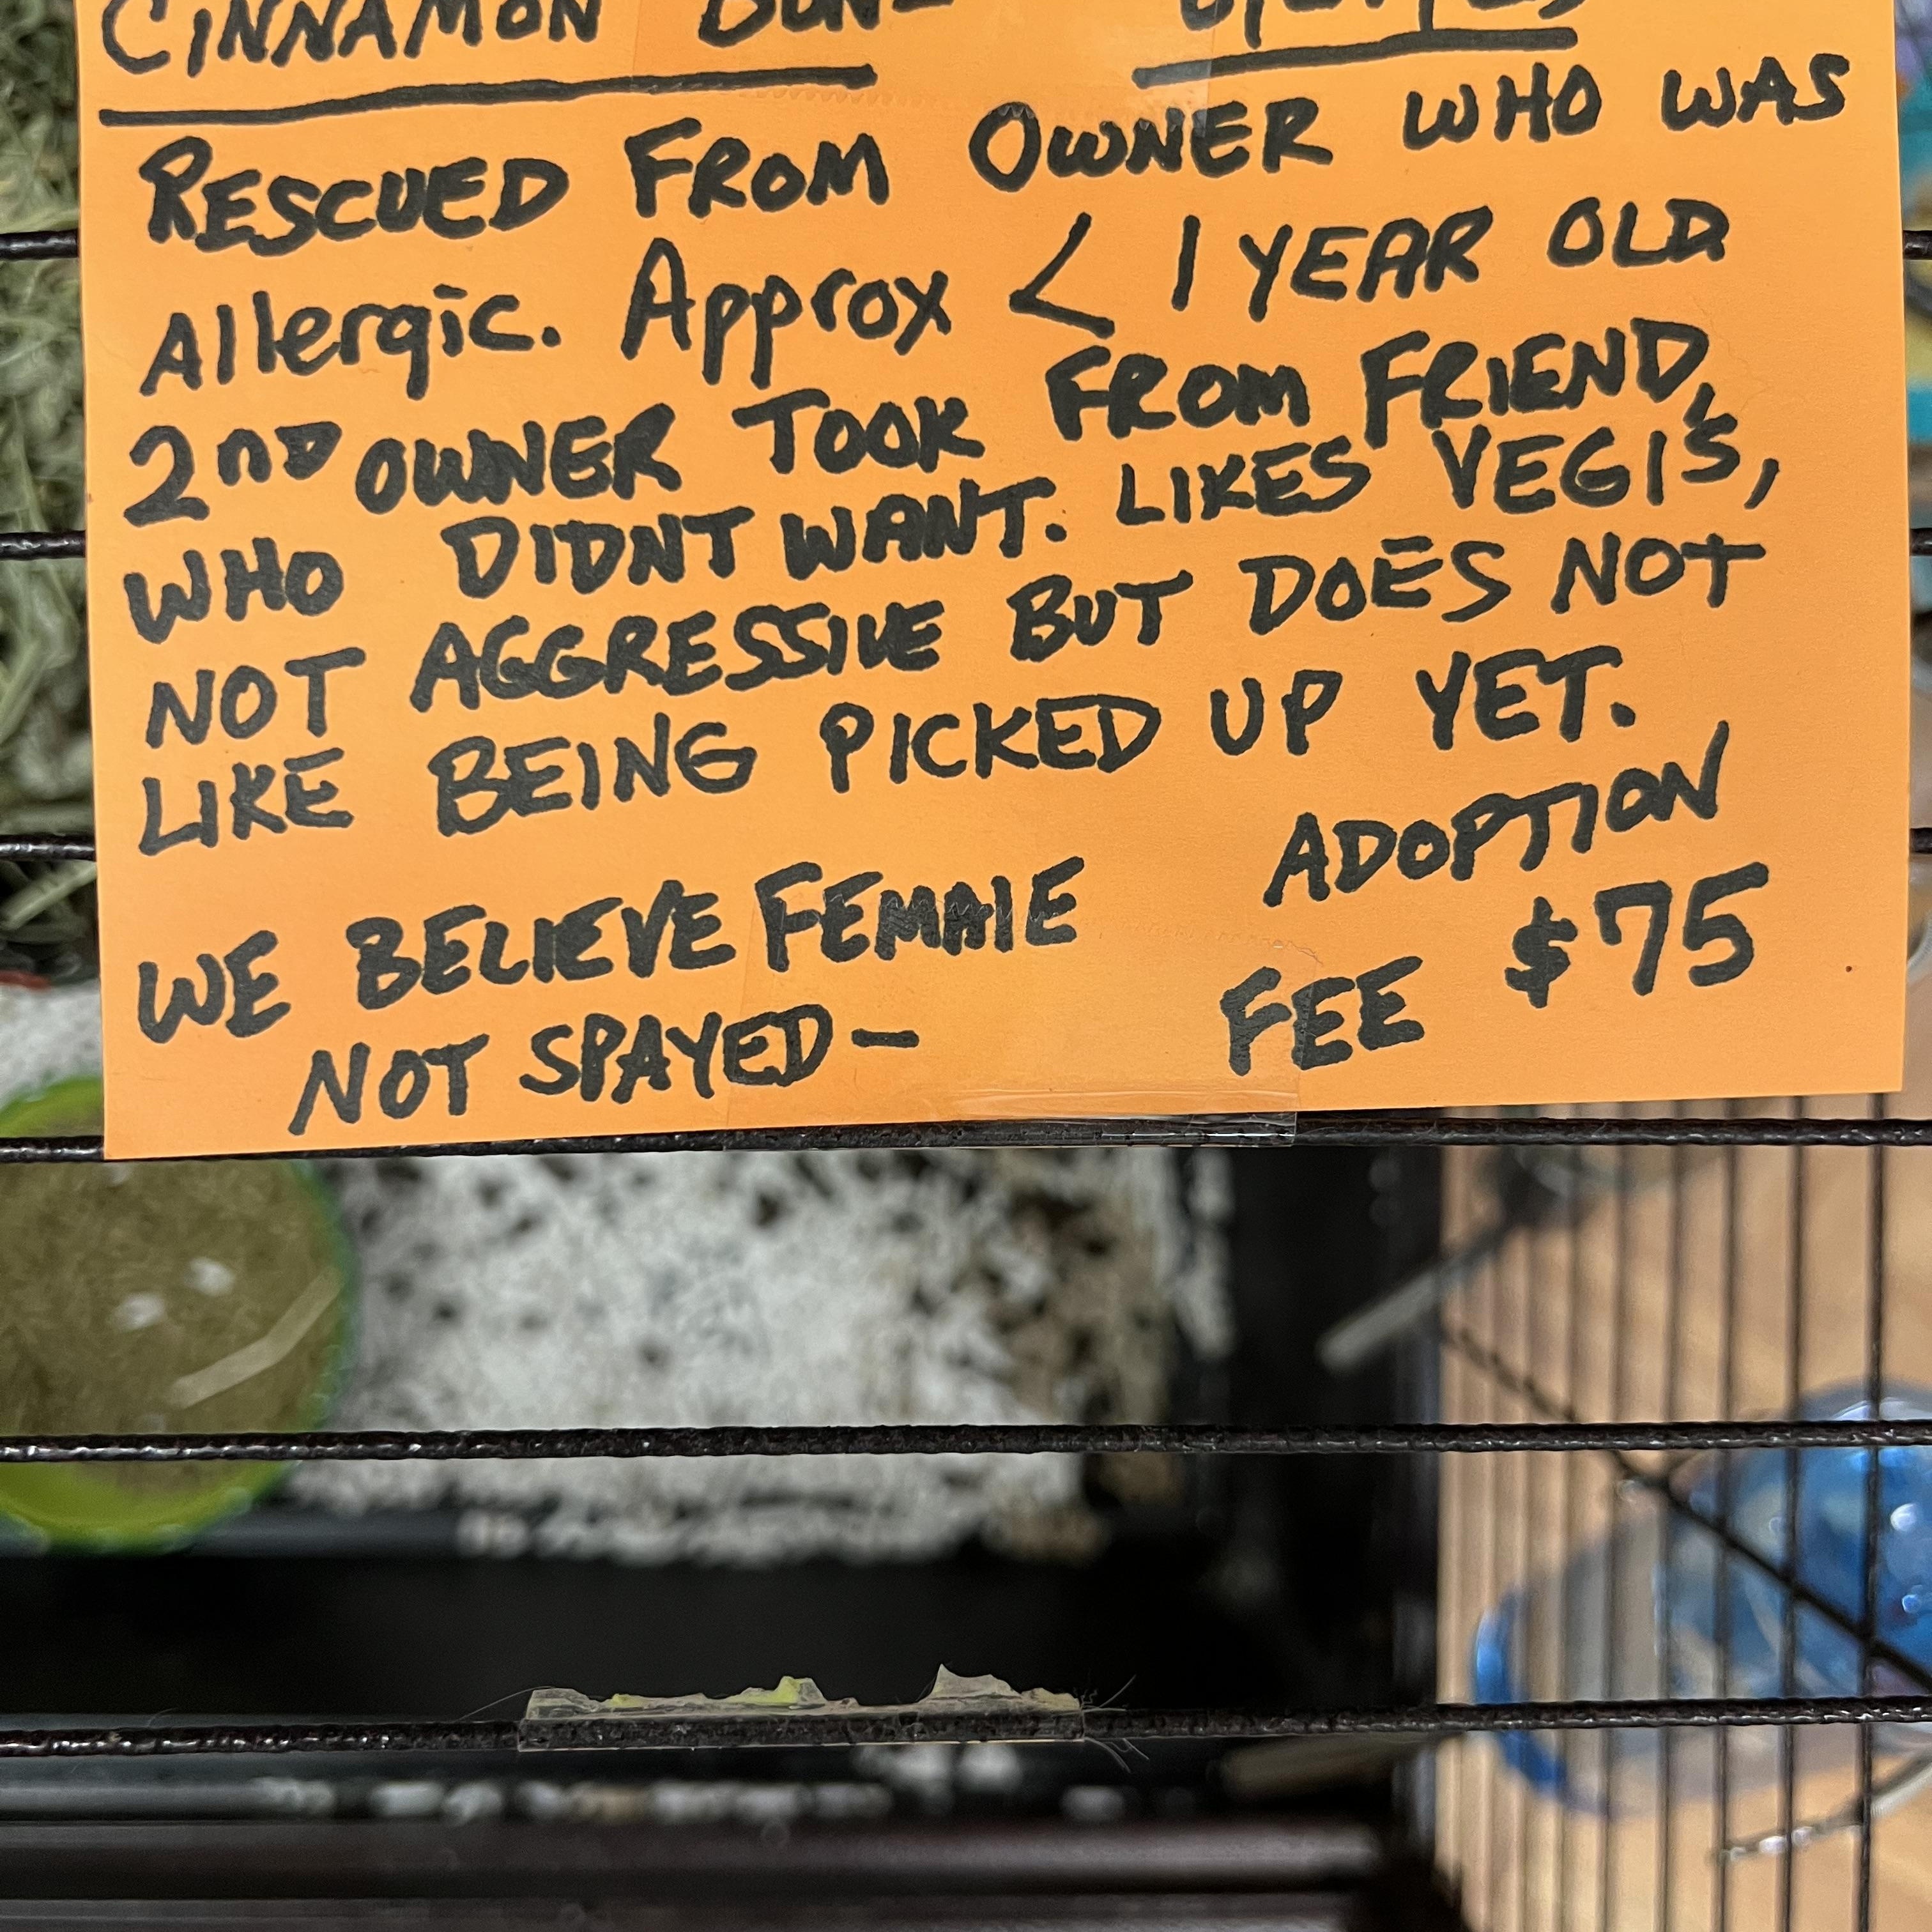 CINNAMON
RESCUED FROM OWNER WHO WAS
Allergic. Approx < 1 YEAR OLD
2ND OWNER TOOK FROM FRIEND,
WHO DIDNT WANT. LIKES VEGIS,
NOT AGGRESSIVE BUT DOES NOT
LIKE BEING PICKED UP YET.
WE BELIEVE FEMALE
NOT SPAYED -
ADOPTION
FEE $75